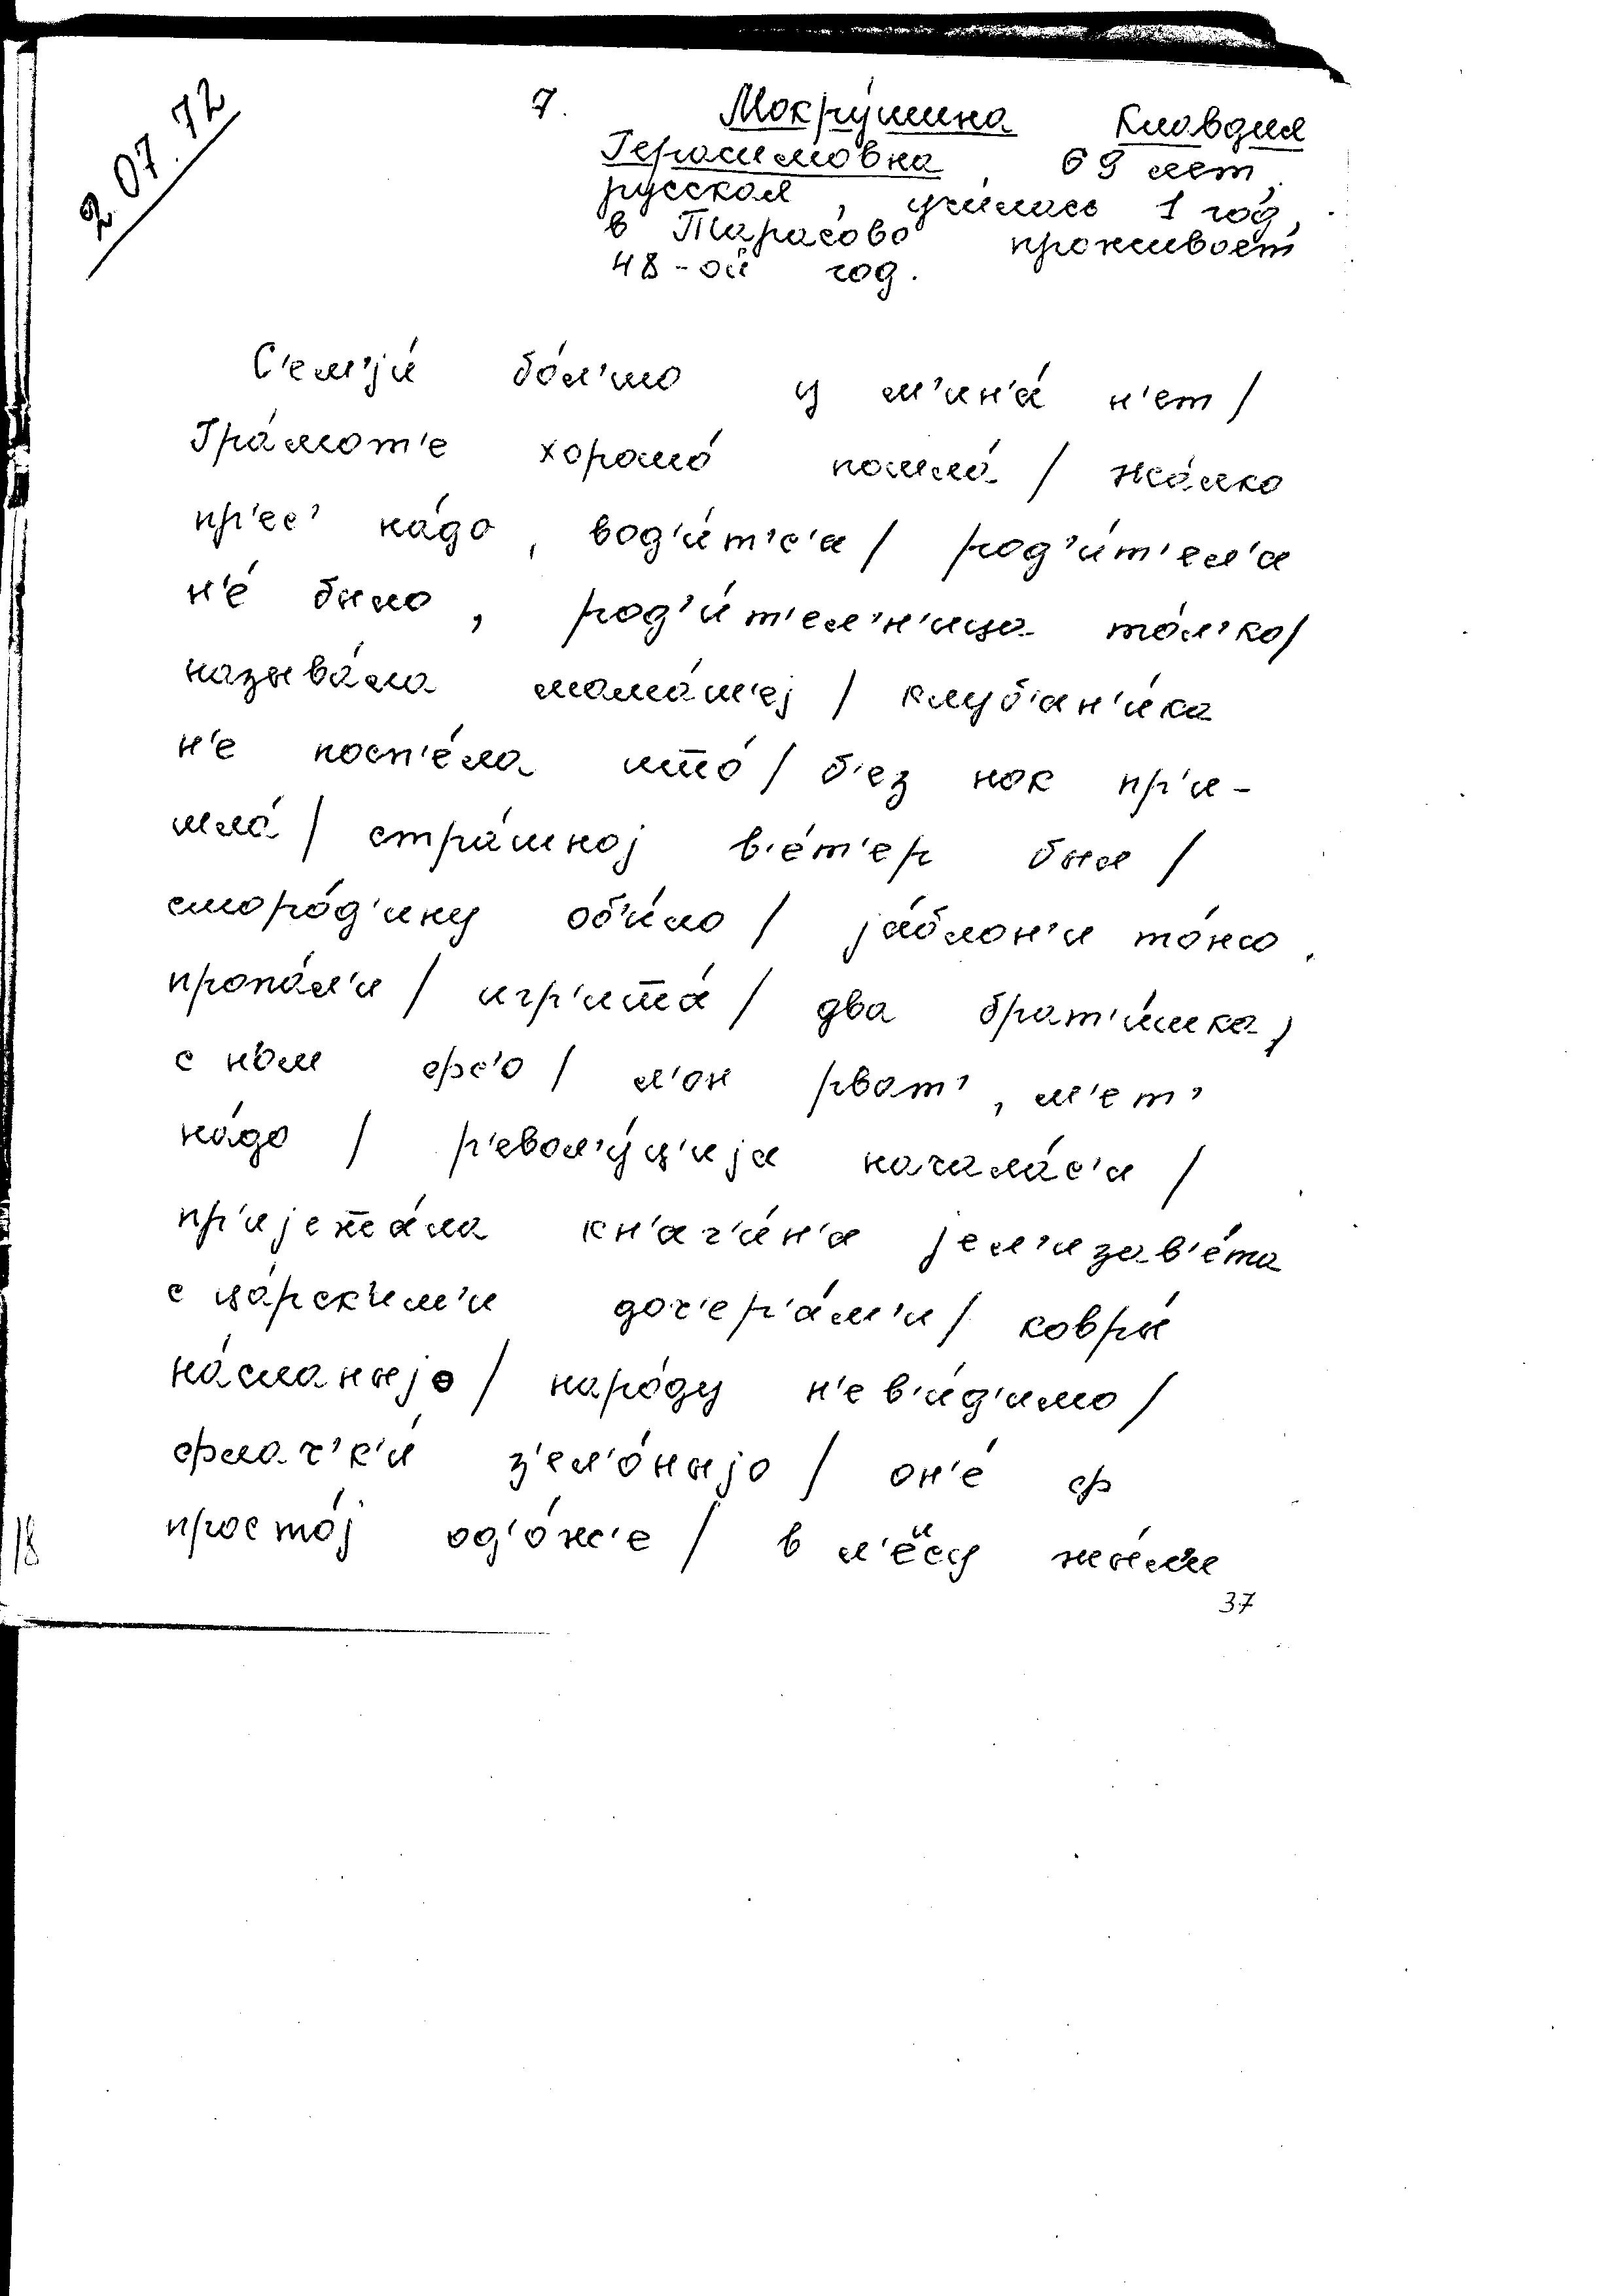 2.07.72
7. Мокру́шина Клавдия
Герасимовна, 69 лет,
русская, училась 1 год,
в Тарасово проживает
48-ой год.
С'ем'jи́ бо́л'шо у м'ин'а́ н'ет /
Гра́мот'е хорошо́ пошла́ / жа́лко
пр'ес' на́до, вод'и́т'с'а / род'и́т'ел'а
н'е́ было, род'и́т'ел'н'ица то́л'ко /
называ́ла мама́ш'еj / клуб'ан'и́ка
н'е посп'е́ла што́ / б'ез нок пр'и-
шла́ / стра́шноj в'е́т'ер был /
сморо́д'ину об'и́ло / jа́блон'и то́жо
пропа́л'и / игр'ишша́ / два брат'и́шка,
с н'им фс'о / л'он рват', м'ет'
на́до / р'евол'у́ц'иjа начала́с'и /
пр'иjежжа́ла кн'аг'и́н'а jел'изав'е́та
с ца́рск'им'и доч'ер'а́м'и / ковры́
на́сланыjо / наро́ду н'ев'и́д'имо /
флач'к'и́ з'ел'о́ныjо / он'е́ ф
просто́j од'о́ж'е / в л'ёсу жы́л'и
18
37